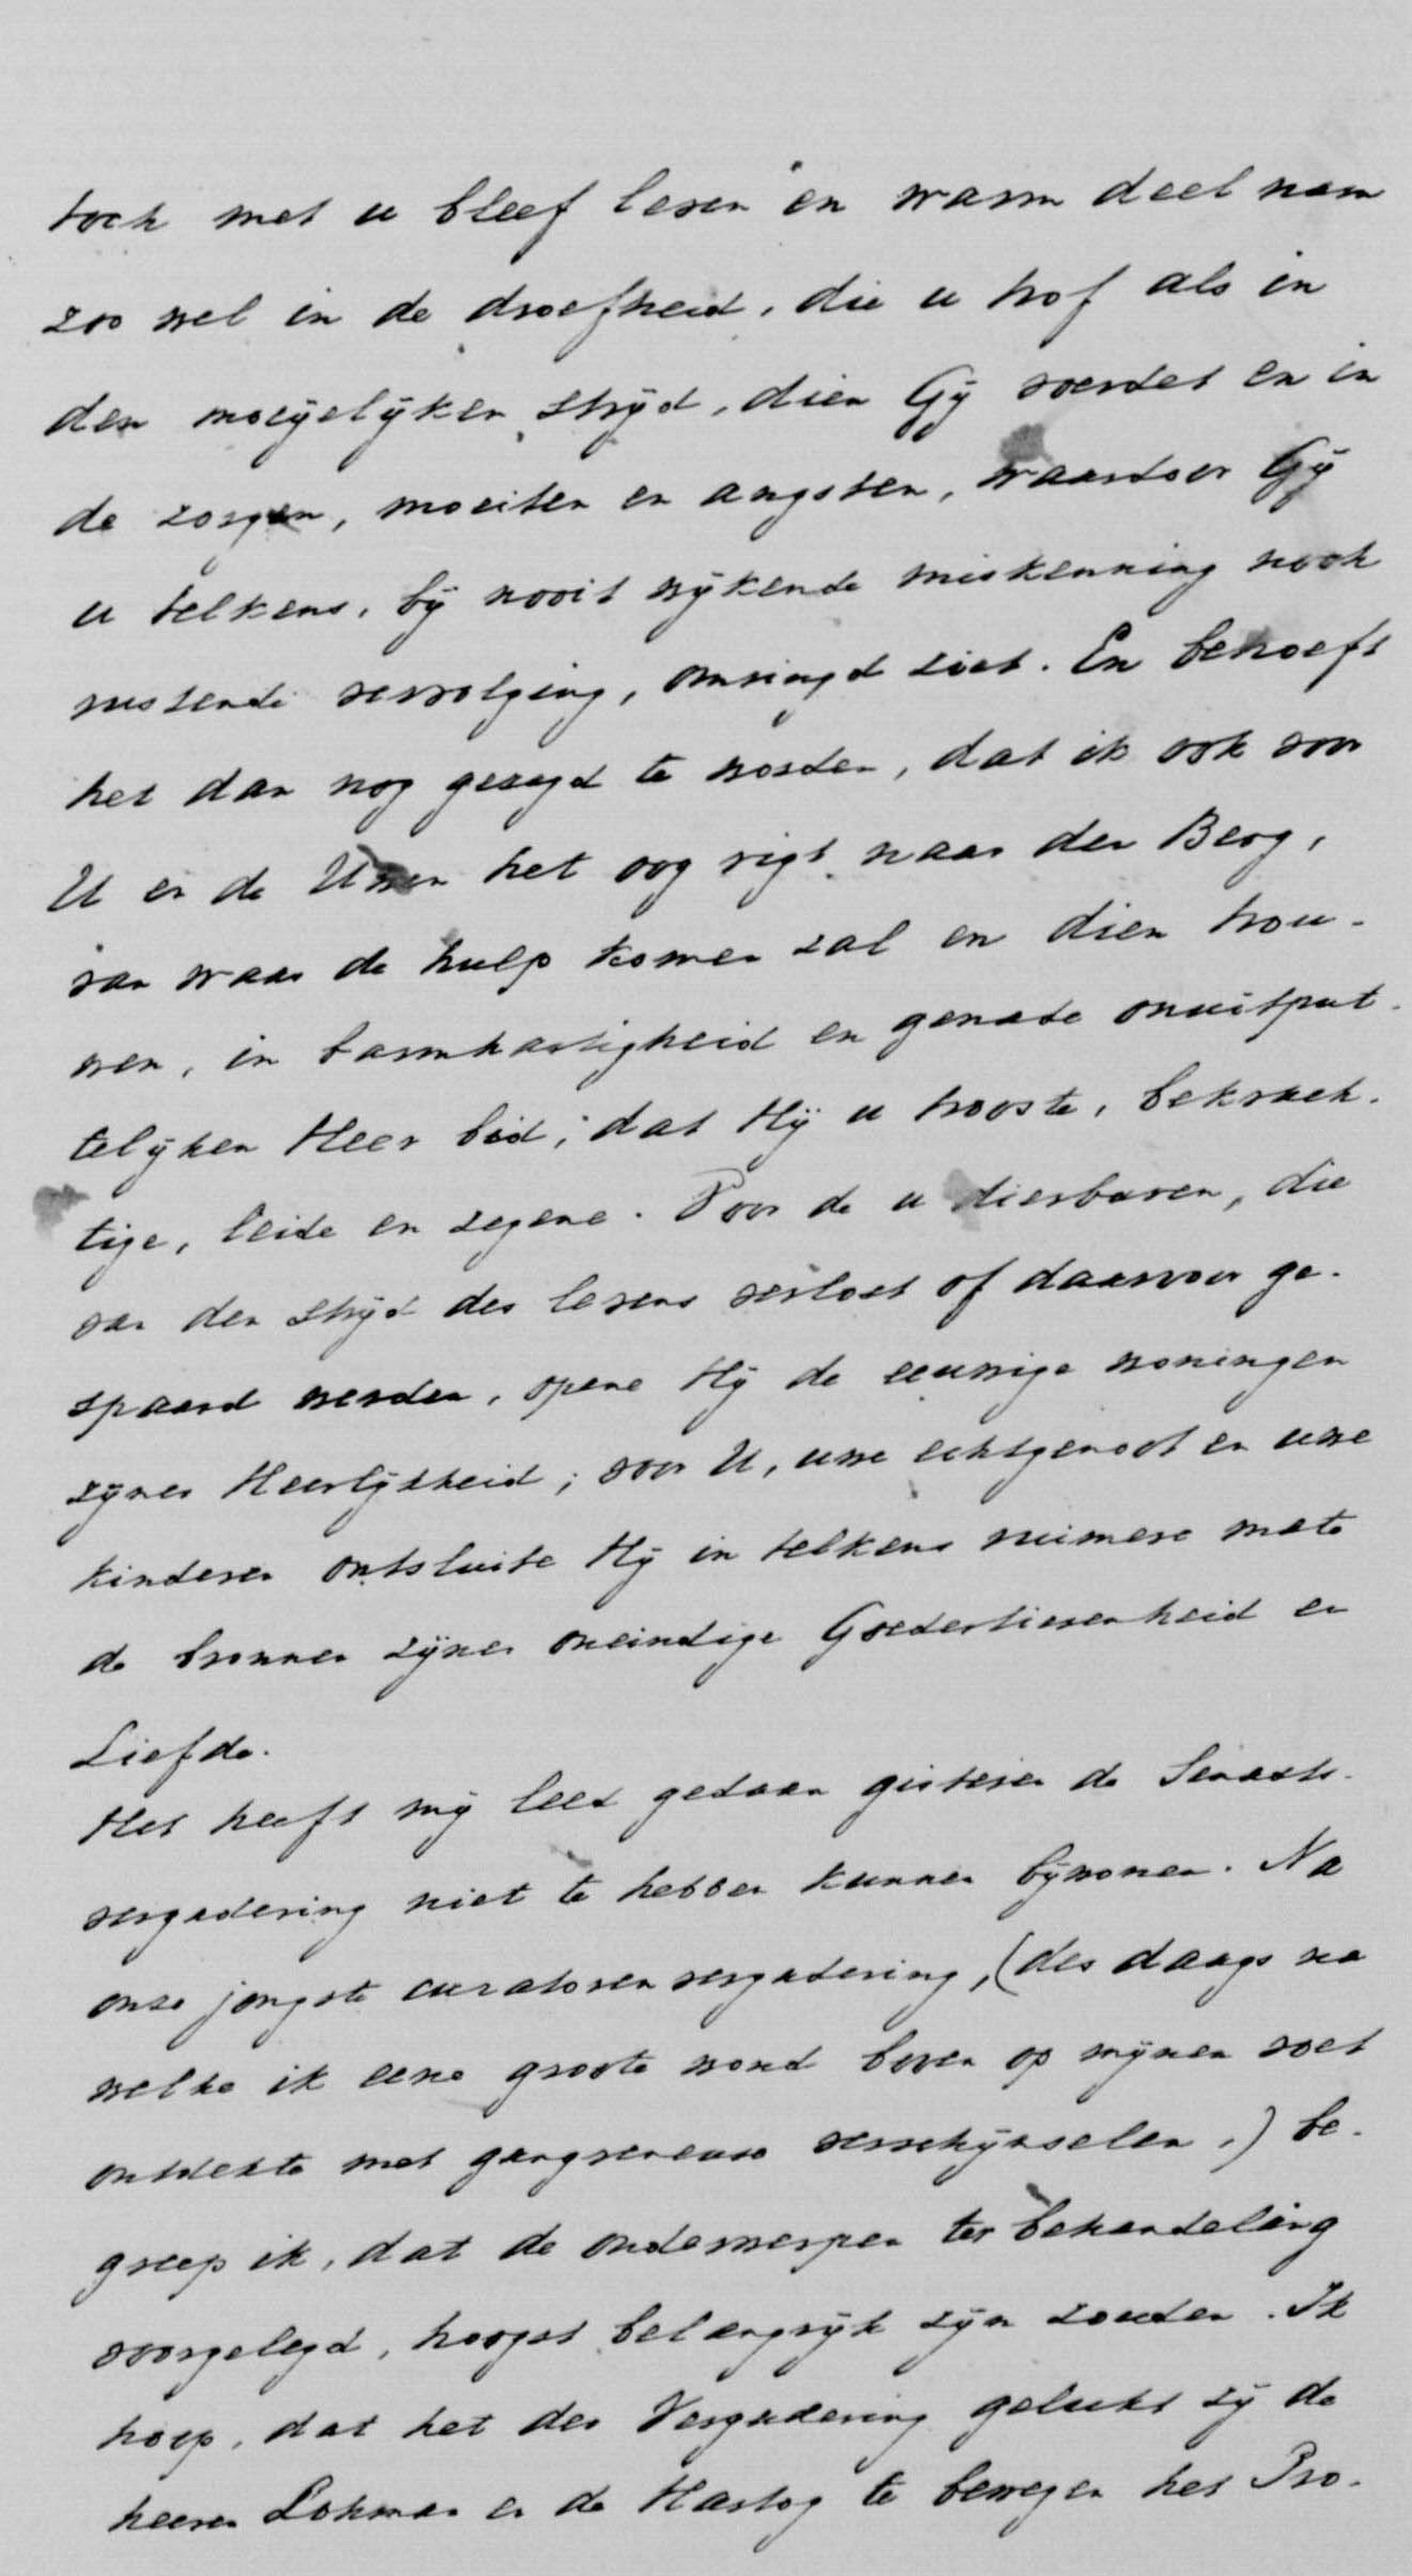 toch met u bleef leven en warm deel nam
zoo wel in de droefheid, die u trof als in
den moeyelyken stryd, dien Gy voerdet en in
de zorgen, moeiten en angsten, waardoor Gy
u telkens, by nooit wykende miskenning noch
rustende vervolging, omringd ziet. En behoeft
het dan nog gezegd te worden, dat ik ook voor
U en de Uwen het oog rigt naar den Berg,
van waar de hulp komen zal en dien trou-
wen, in barmhartigheid en genade onuitput-
telyken Heer bid, dat Hy u trooste, bekrach-
tige, leide en zegene. Voor de u dierbaren, die
van den stryd des levens verlost of daarvoor ge-
spaard werden, opene Hy de eeuwige woningen
zyner Heerlykheid; voor U, uwe echtgenoot en uwe
kinderen ontsluite Hy in telkens ruimere mate
de bronnen zyner oneindige Goedertierenheid en
Liefde.
Het heeft my leed gedaan gisteren de Senaats-
vergadering niet te hebben kunnen bywonen. Na
onze jongste curatoren vergadering, (des daags na
welke ik eene groote wond boven op mynen voet
ontdekte met gangreneuse verschynselen,) be-
greep ik, dat de onderwerpen ter behandeling
voorgelegd, hoogst belangryk zyn zouden. Ik
hoop, dat het der Vergadering gelukt zy de
heeren Lohman en de Hartog te bewegen het Pro-